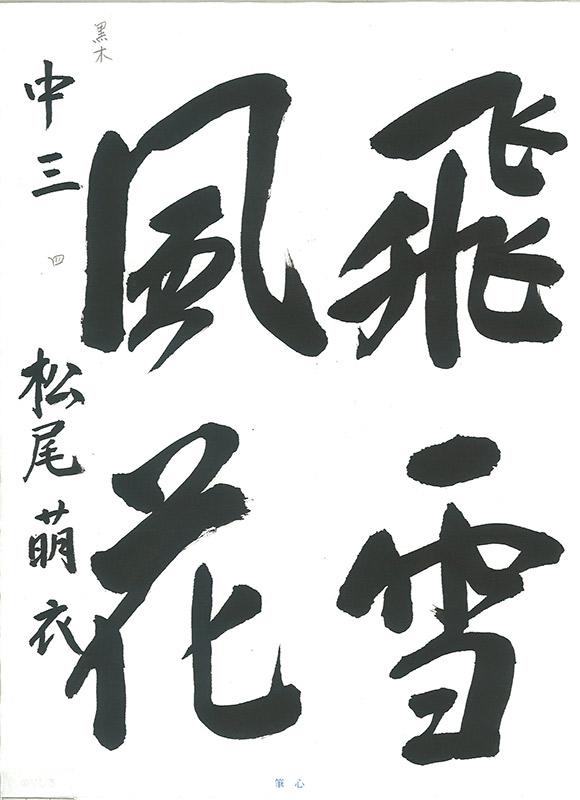 飛雪
風花
中三 四 松尾萌衣
黒木
心筆